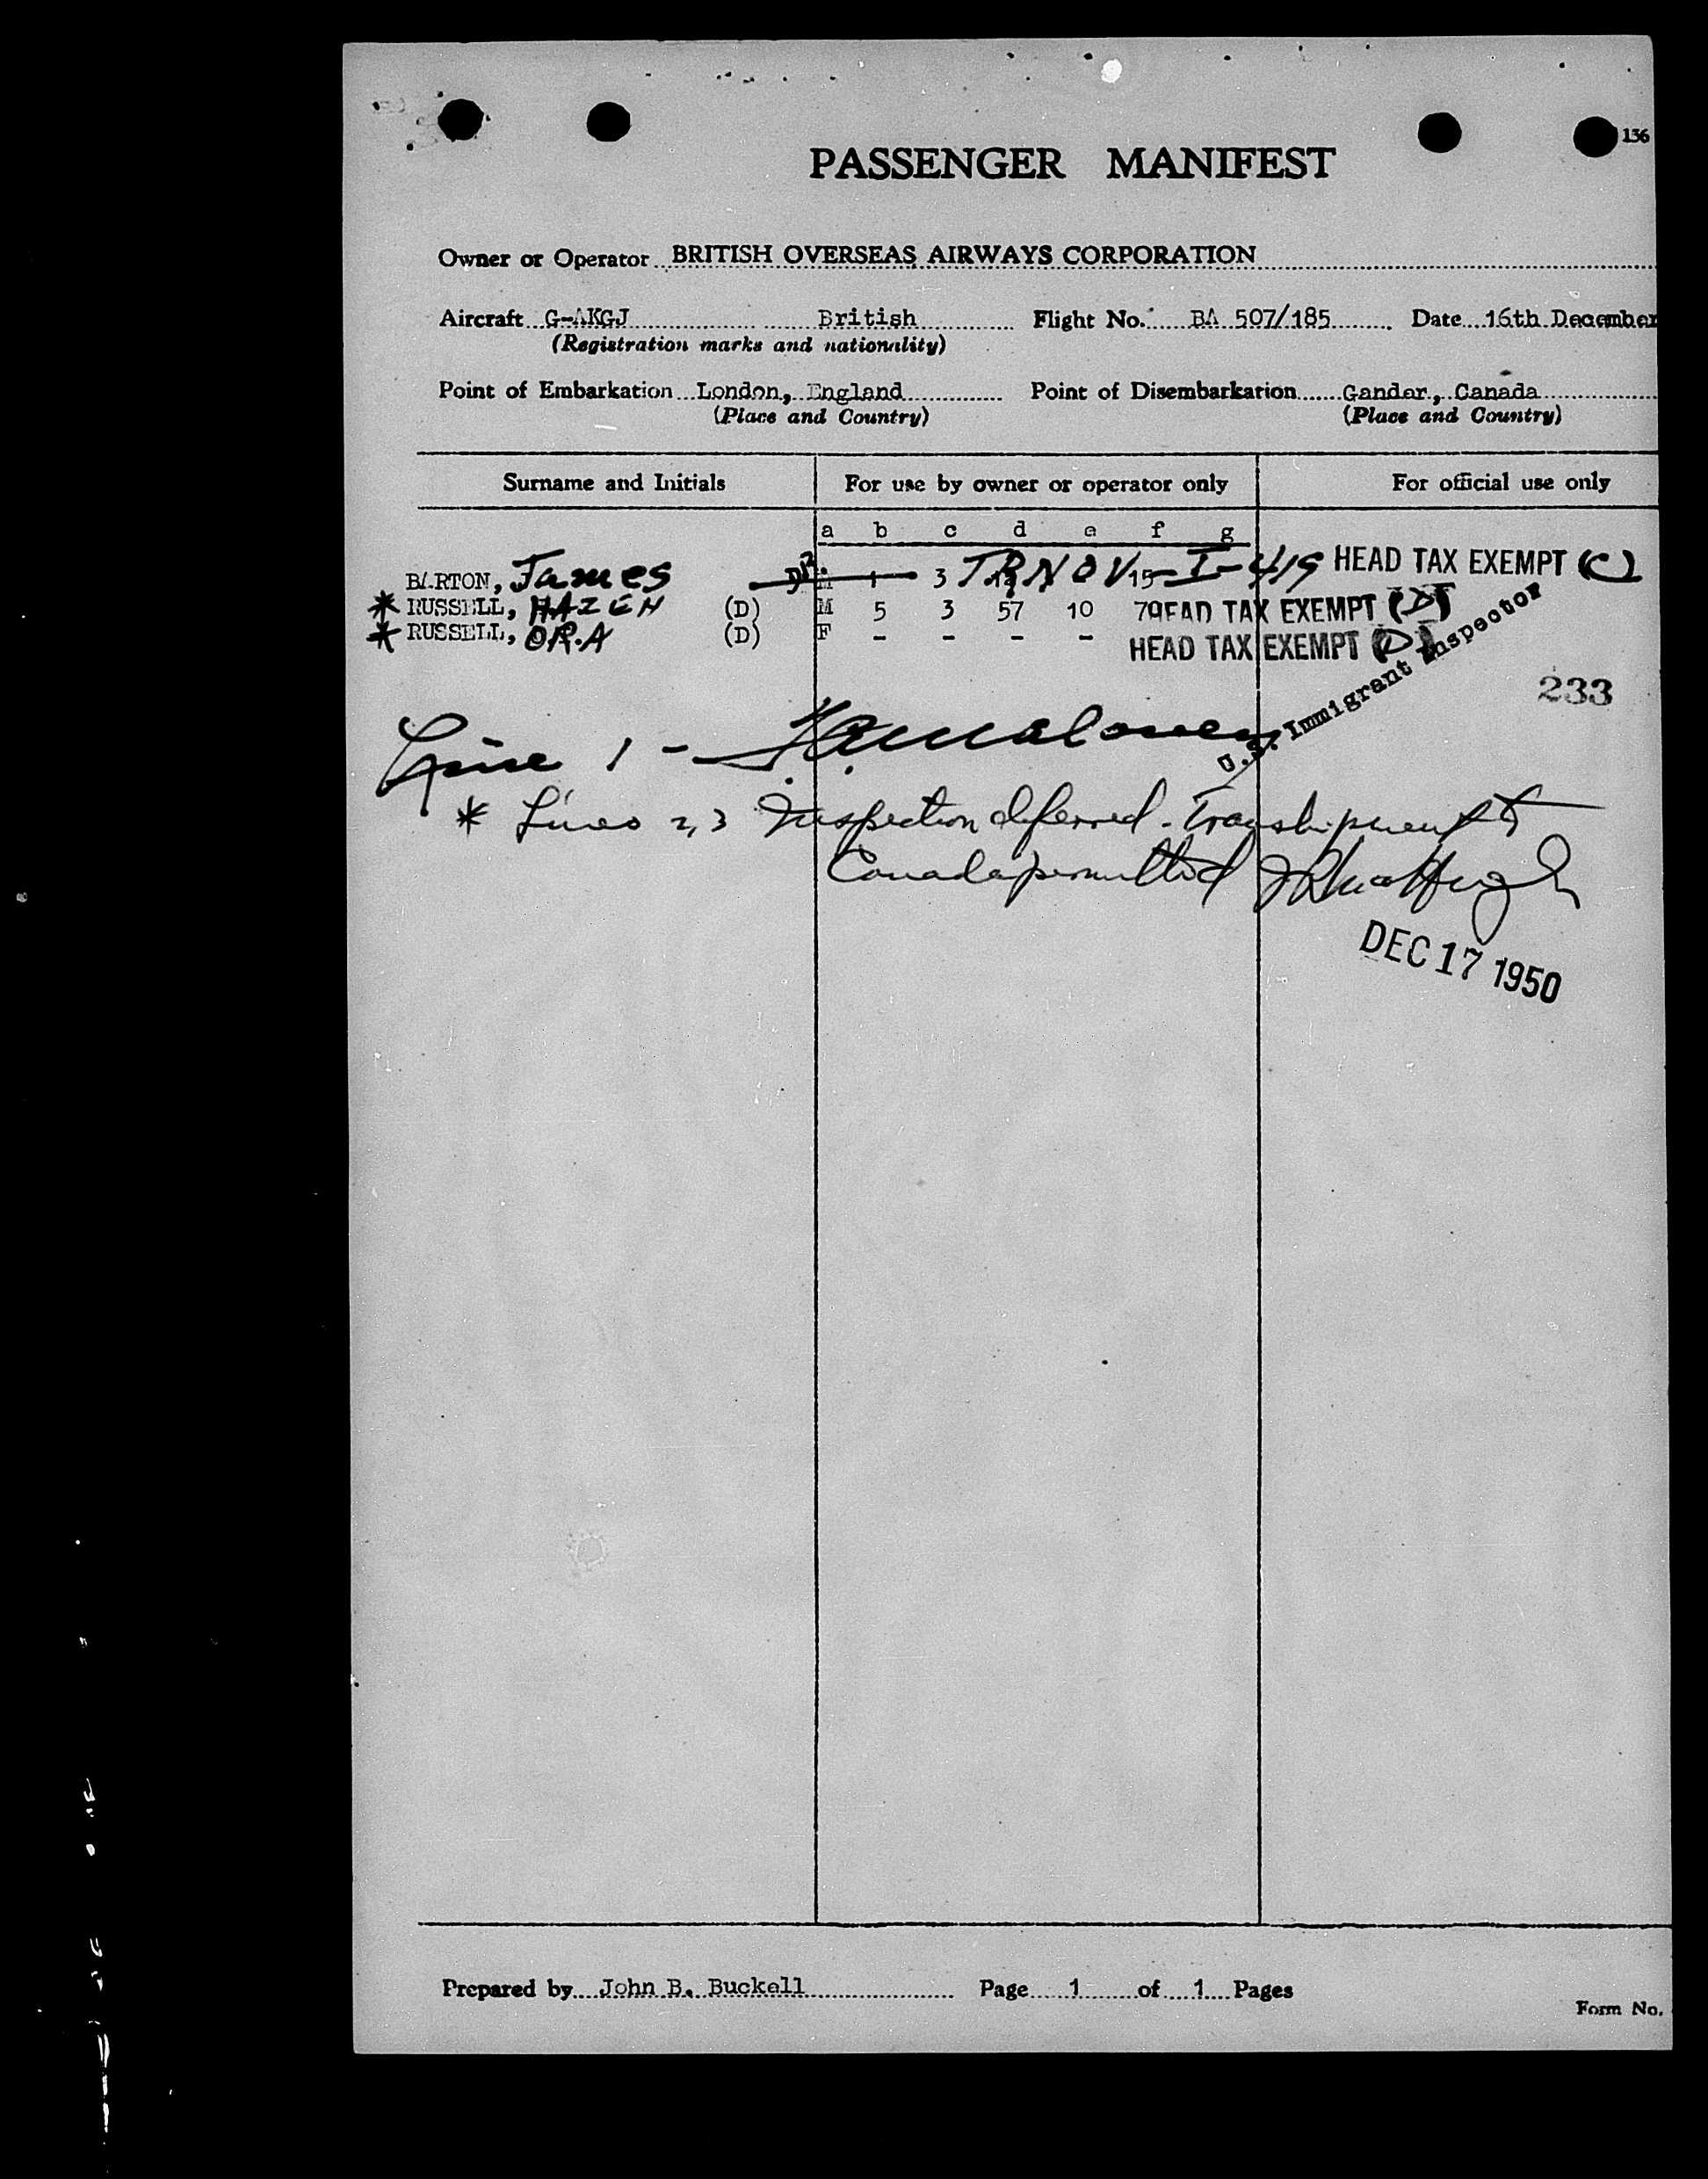 136
PASSENGER MANIFEST
Owner or Operator BRITISH OVERSEAS AIRWAYS CORPORATION
Aircraft G-AKGJ British Flight No. BA 507/185 Date 16th December
(Registration marks and nationality)
Point of Embarkation London, England Point of Disembarkation Gander, Canada
(Place and Country) (Place and Country)
Surname and Initials For use by owner or operator only For official use only
a b c d e f g
BARTON, James M 1 3 15 HEAD TAX EXEMPT (C)
* RUSSELL, HAZEN (D) M 5 3 57 10 79 HEAD TAX EXEMPT (D)
* RUSSELL, ORA (D) F - - - - HEAD TAX EXEMPT (D)
U.S. Immigrant Inspector
233
Line 1 -
* Lines 2, 3 Inspection deferred - Transhipment
Canada permitted
DEC 17 1950
Prepared by John B. Buckell Page 1 of 1 Pages
Form No.